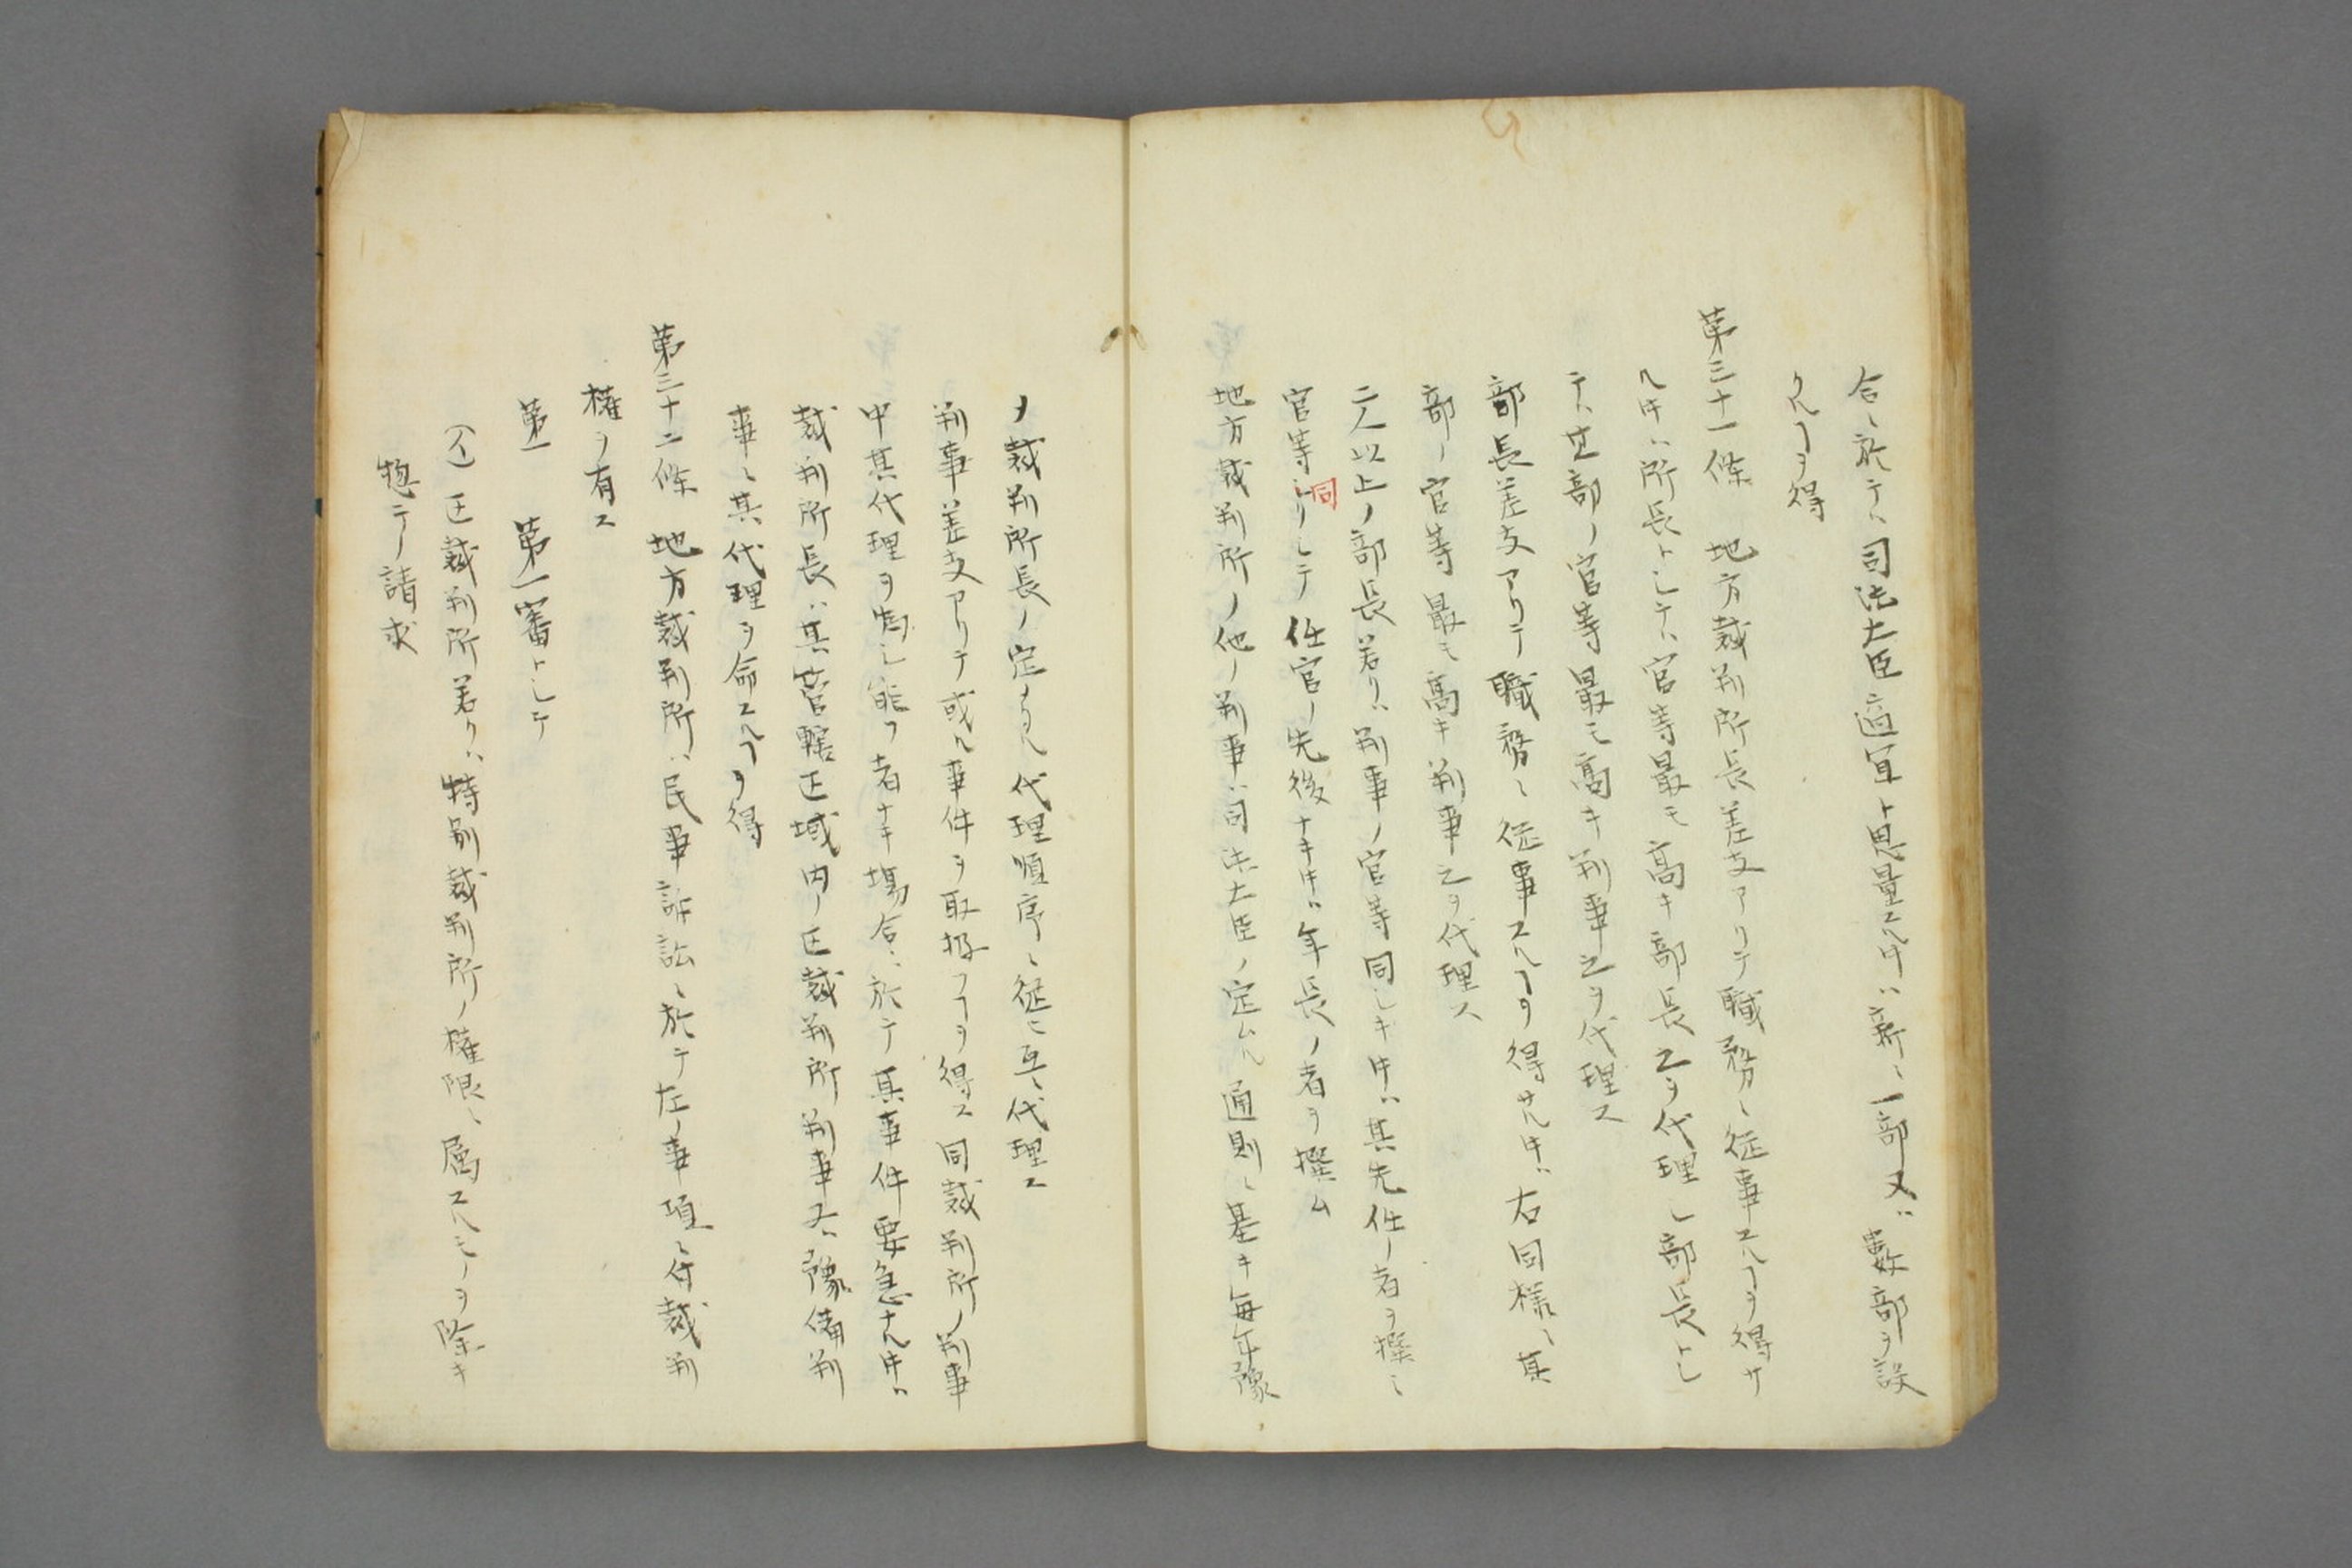 合ニ於テハ司法大臣適宜ト思量スル𪜈ハ新ニ一部又ハ數部ヲ設
クルヿヲ得
第三十一條　地方裁判所長差支アリテ職務ニ從事スルヿヲ得サ
ル𪜈ハ所長トシテハ官等最モ高キ部長之ヲ代理シ部長トシ
テハ其部ノ官等最モ高キ判事之ヲ代理ス
部長差支アリテ職務ニ從事スルヿヲ得サル𪜈ハ右同樣ニ其
部ノ官等最モ高キ判事之ヲ代理ス
二人以上ノ部長若クハ判事ノ官等同シキ𪜈ハ其先任ノ者ヲ撰ミ
官等同クシテ任官ノ先後ナキ𪜈ハ年長ノ者ヲ撰ム
地方裁判所ノ他ノ判事ハ司法大臣ノ定ムル通則ニ基キ毎年豫
メ裁判所長ノ定メタル代理順序ニ從ヒ互ニ代理ス
判事差支アリテ或ル事件ヲ取扱フヿヲ得ス同裁判所ノ判事
中其代理ヲ為シ能フ者ナキ塲合ニ於テ其事件要急ナル𪜈ハ
裁判所長ハ其管轄区域内ノ区裁判所判事又ハ豫備判
事ニ其代理ヲ命スルヿヲ得
第三十二條　地方裁判所ハ民事訴訟ニ於テ左ノ事項ニ付裁判
權ヲ有ス
第一　第一審トシテ
（イ）区裁判所若クハ特別裁判所ノ權限ニ属スルモノヲ除キ
惣テノ請求